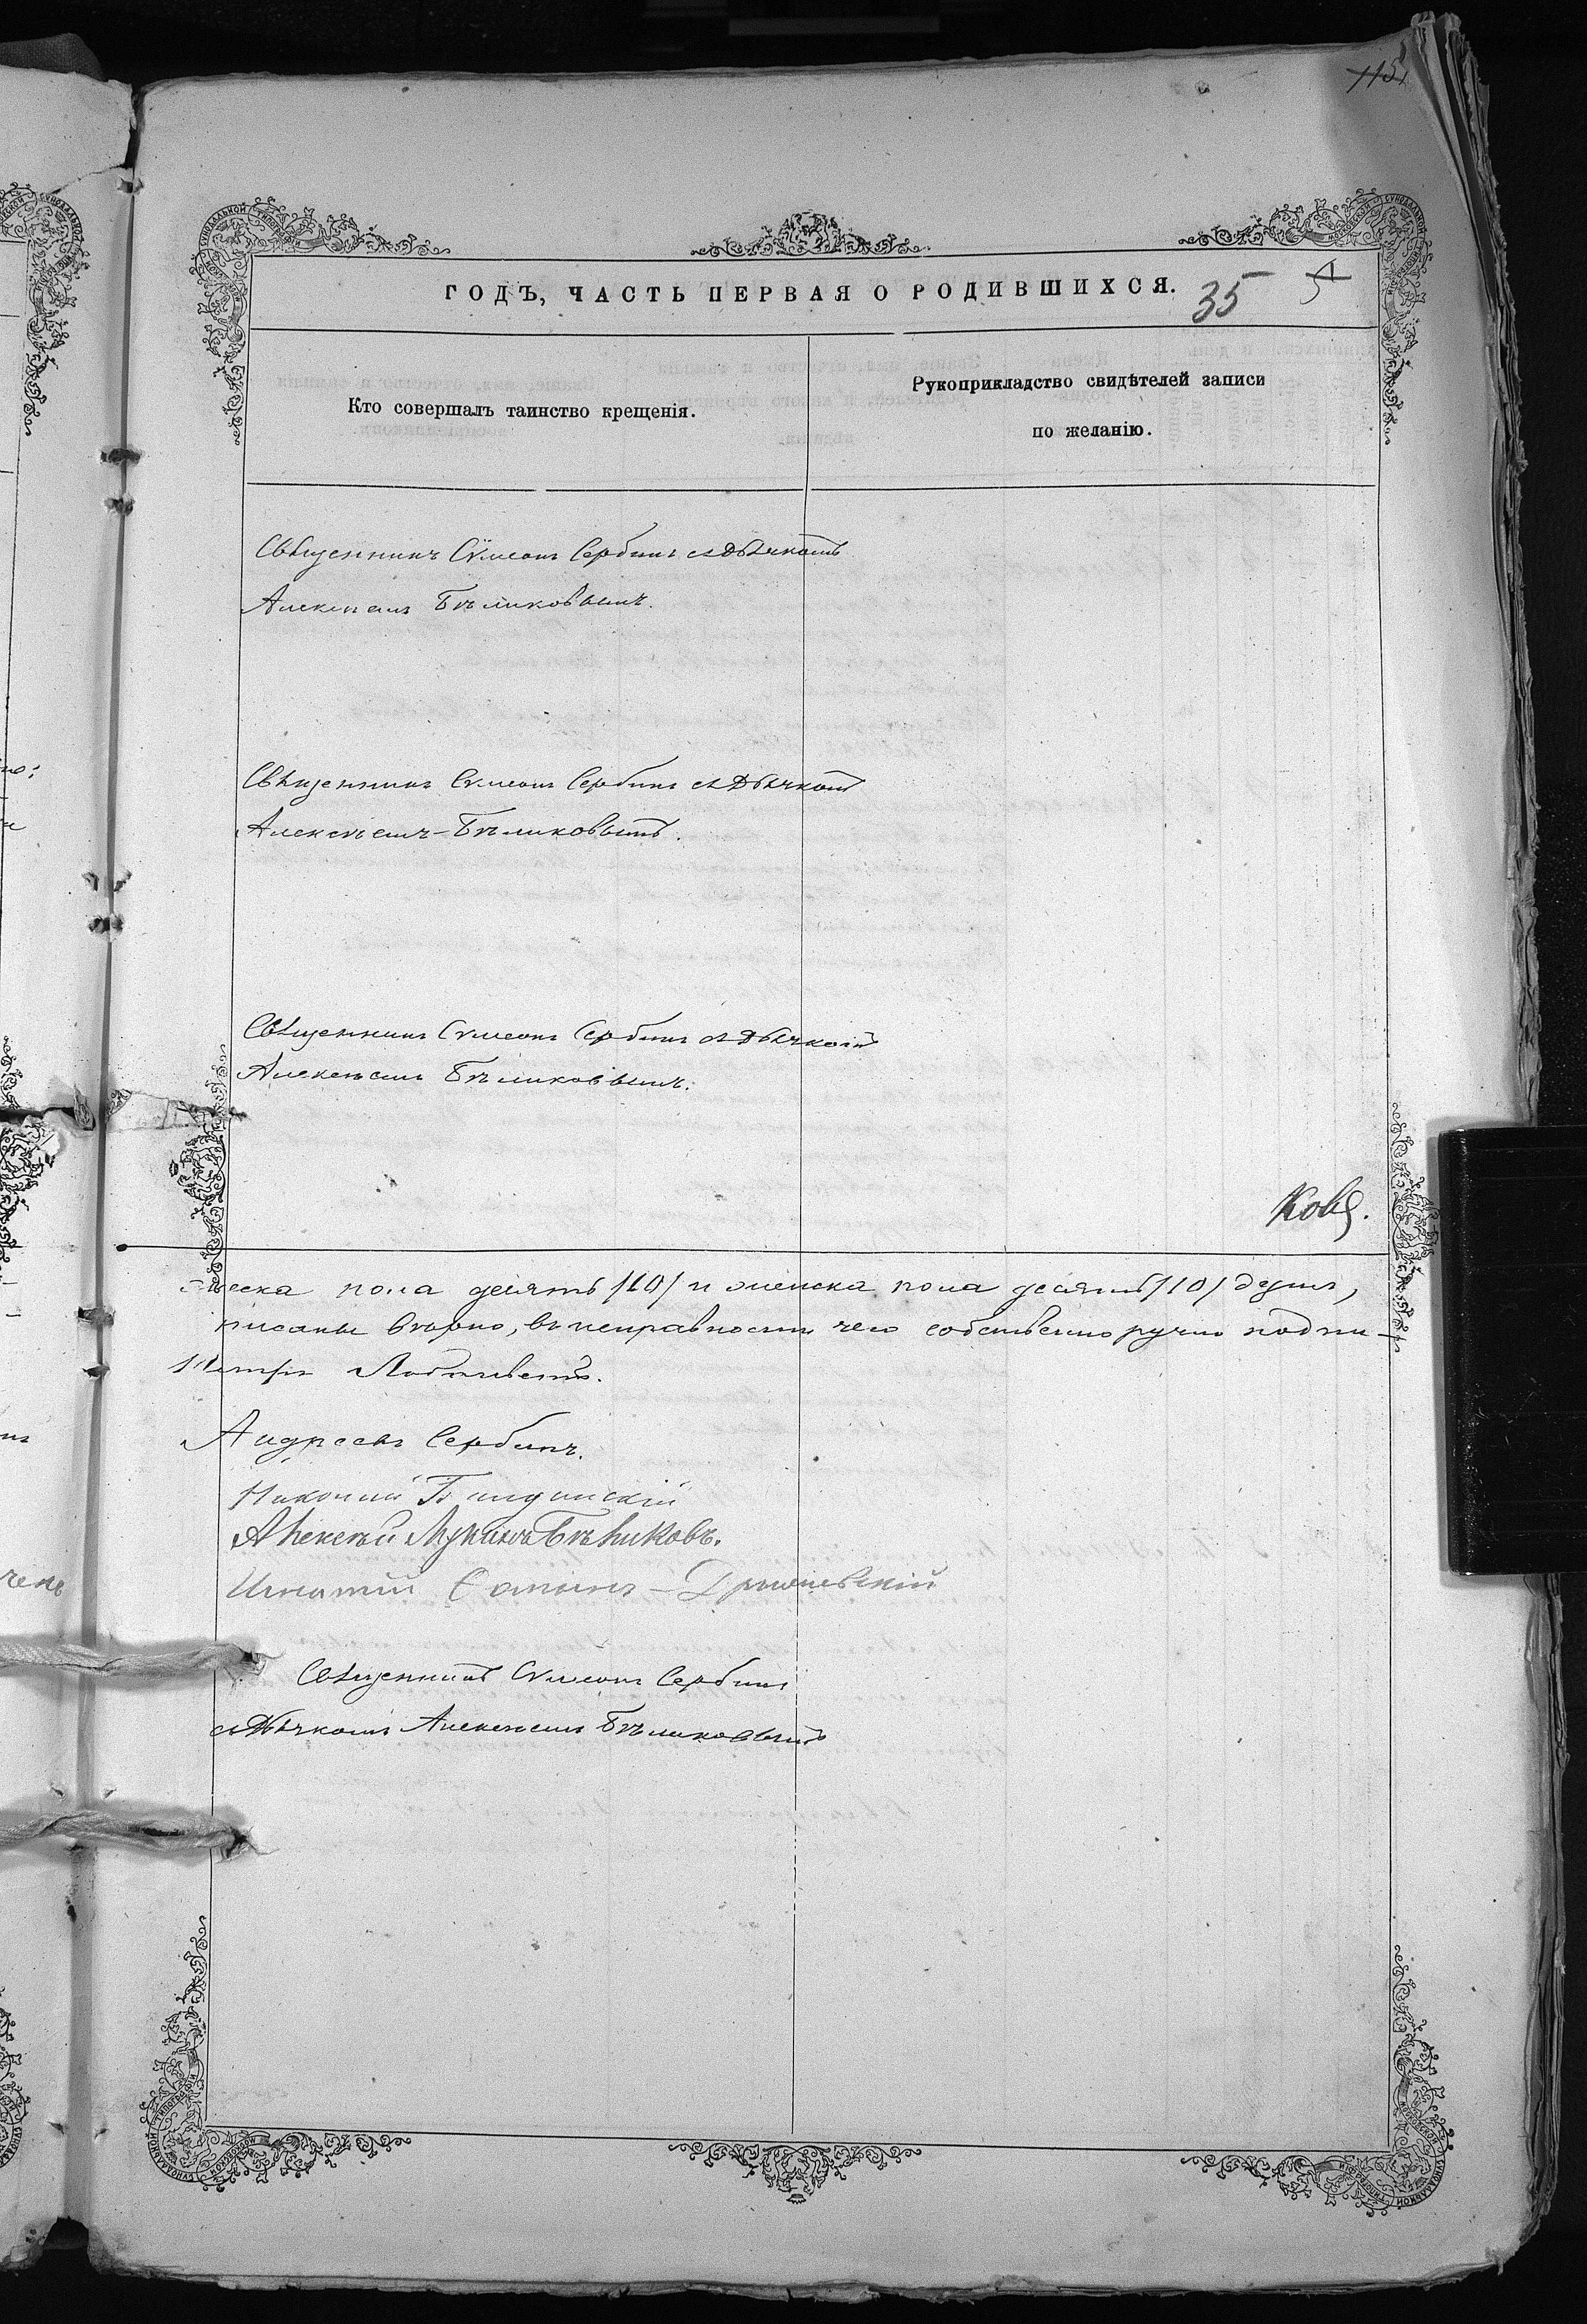 115
ГОДЪ, ЧАСТЬ ПЕРВАЯ О РОДИВШИХСЯ.
35
Кто совершалъ таинство крещенія.
Рукоприкладство свидѣтелей записи
по желанію.
Священникъ Сѵмеонъ Сербинъ съ дьячкомъ
Алексѣемъ Бѣликовымъ.
Священникъ Сѵмеонъ Сербинъ съ дьячкомъ
Алексѣемъ Бѣликовымъ.
Священникъ Сѵмеонъ Сербинъ съ дьячкомъ
Алексѣемъ Бѣликовымъ.
жеска пола десять /10/ и женска пола десять /10/ душъ,
писаны вѣрно, въ исправности чего собственноручно подпи-
Андреевъ Сербинъ.
Алексѣй Бѣликовъ.
Игнатій
Священникъ Сѵмеонъ Сербинъ
съ дьячкомъ Алексѣемъ Бѣликовымъ